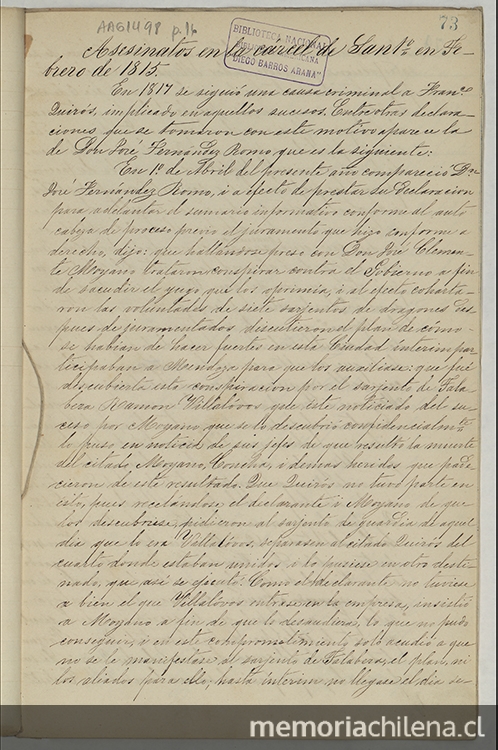 AAG1498 p.16
73
BIBLIOTECA NACIONAL
BIBLIOTECA AMERICANA
"DIEGO BARROS ARANA"
Asesinatos en la cárcel de Santo en Fe-
brero de 1815.
En 1817 se siguió una causa criminal a Franco
Quirós, implicado en aquellos sucesos. Entre otras declara-
ciones que se tomaron con este motivo aparece la
de Don José Fernández Romo, que es la siguiente:
En 1º de Abril del presente año compareció Dn
José Fernández Romo, i a efecto de prestar su declaracion
para adelantar el sumario informativo conforme al auto
cabeza de proceso previo el juramento que hizo conforme a
derecho, dijo: que hallandose preso con Don José Clemen-
te Moyano trataron conspirar contra el Gobierno a fin
de sacudir el yugo que los oprimia, i al efecto cohorta-
ron las voluntades de siete sarjentos de dragones des
pues de juramentados, discutieron el plan de como
se habian de hacer fuertes en esta Ciudad interim par-
ticipaban a Mendoza para que los auxiliase: que fué
descubierta esta conspiracion por el sarjento de Tala
bera Ramon Villalovos que este noticiado del su-
ceso por Moyano que se lo descubrió confidencialmte
lo puso en noticia de sus jefes de que resultó la muerte
del citado Moyano, Concha, i demas heridos que pade-
cieron de este resultado. Que Quirós no tuvo parte en
esto, pues recelandose el declarante i Moyano de que
los descubriese, pidieron al sarjento de guardia de aquel
dia que lo era Villalovos, separasen al citado Quirós del
cuarto donde estaban unidos i lo pusiese en otro desti-
nado, que asi se ejecutó. Como el declarante no tuviese
a bien el que Villalovos entrase en la empresa, insistió
a Moyano a fin de que lo desaudiera, lo que no pudo
conseguir, i en este comprometimiento solo acudió a que
no se le manifestase al sarjento de Talabera, el plan, ni
los aliados para ello, hasta interim no llegase el dia se
memoriachilena.cl